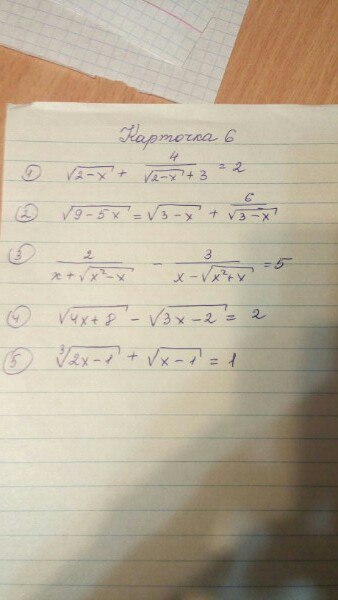 Карточка 6
① √(2-x) + 4/(√(2-x) + 3) = 2
② √(9-5x) = √(3-x) + 6/√(3-x)
③ 2/(x+√(x²-x)) - 3/(x-√(x²+x)) = 5
④ √(4x+8) - √(3x-2) = 2
⑤ ∛(2x-1) + √(x-1) = 1